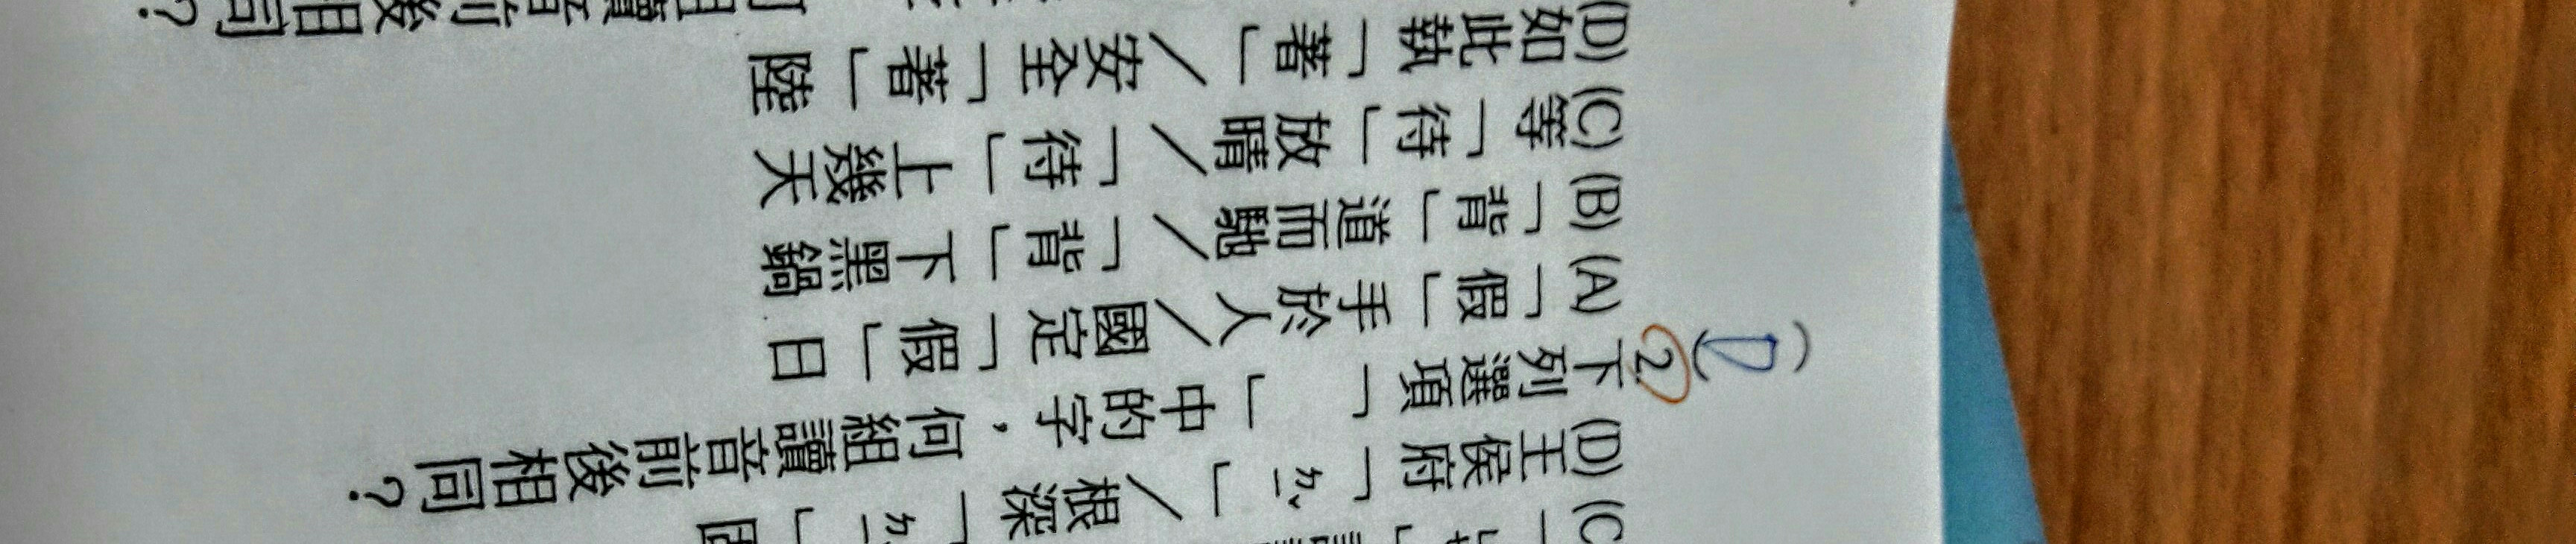 (C
(D)王侯府「ㄉㄧˋ」／根深「ㄉㄧˋ」固
( D ) 2 下列選項「　」中的字，何組讀音前後相同？
(A)「假」手於人／國定「假」日
(B)「背」道而馳／「背」下黑鍋
(C)等「待」放晴／「待」上幾天
(D)如此執「著」／安全「著」陸
組讀音前後相同？